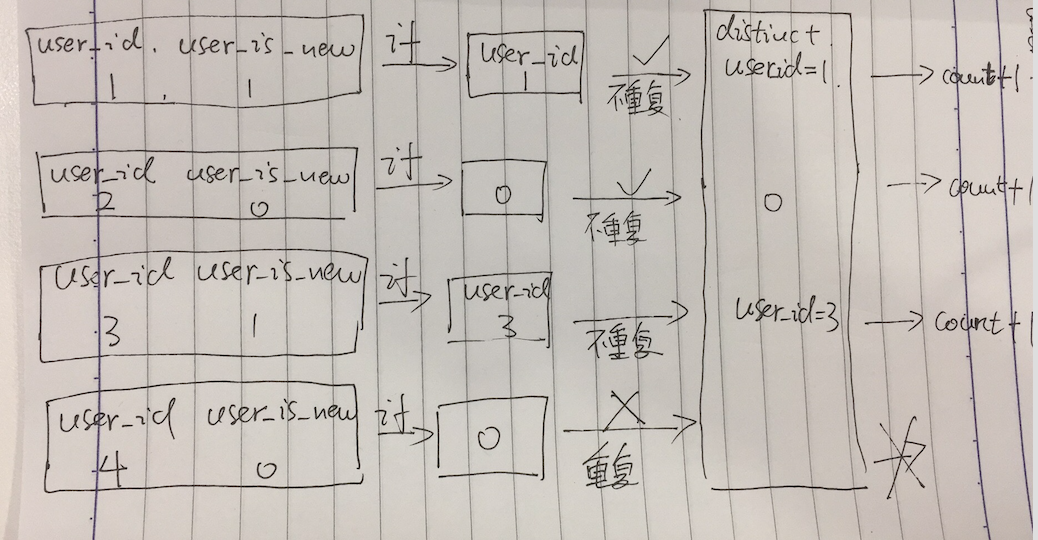 user_id. user_is_new
1 1
计
user_id
1
✓
不重复
distinct
userid=1
count+1
user_id user_is_new
2 0
计
0
✓
不重复
0
count+1
user_id user_is_new
3 1
计
user_id
3
不重复
user_id=3
count+1
user_id user_is_new
4 0
计
0
X
重复